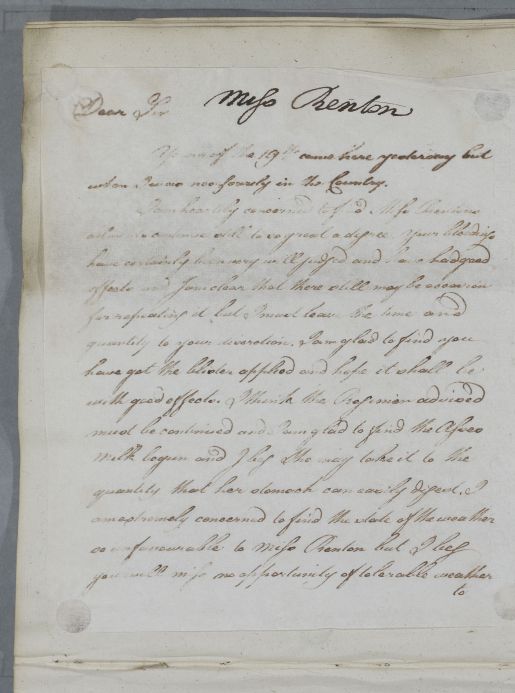 Dear Sir Miss Renton
Yours of the 19th came here yesterday but
when I was necessarly in the Country.
I am heartily concerned to find Miss Rentons
continue still to so great a degree. Your bloodings
have certainly been very well judged and have had good
effects and I am clear that there still may be occasion
for repeating it but I must leave the time and
quantity to your discretion. I am glad to find you
have got the blister applied and hope it shall be
with good effects. I think the Regimen advised
must be continued and I am glad to find the Asses
Milk begun and I beg she may take it to the
quantity that her stomach can easily digest. I
am extremely concerned to find the state of the weather
so unfavourable to Miss Renton but I beg
you will miss no opportunity of tolerable weather
to